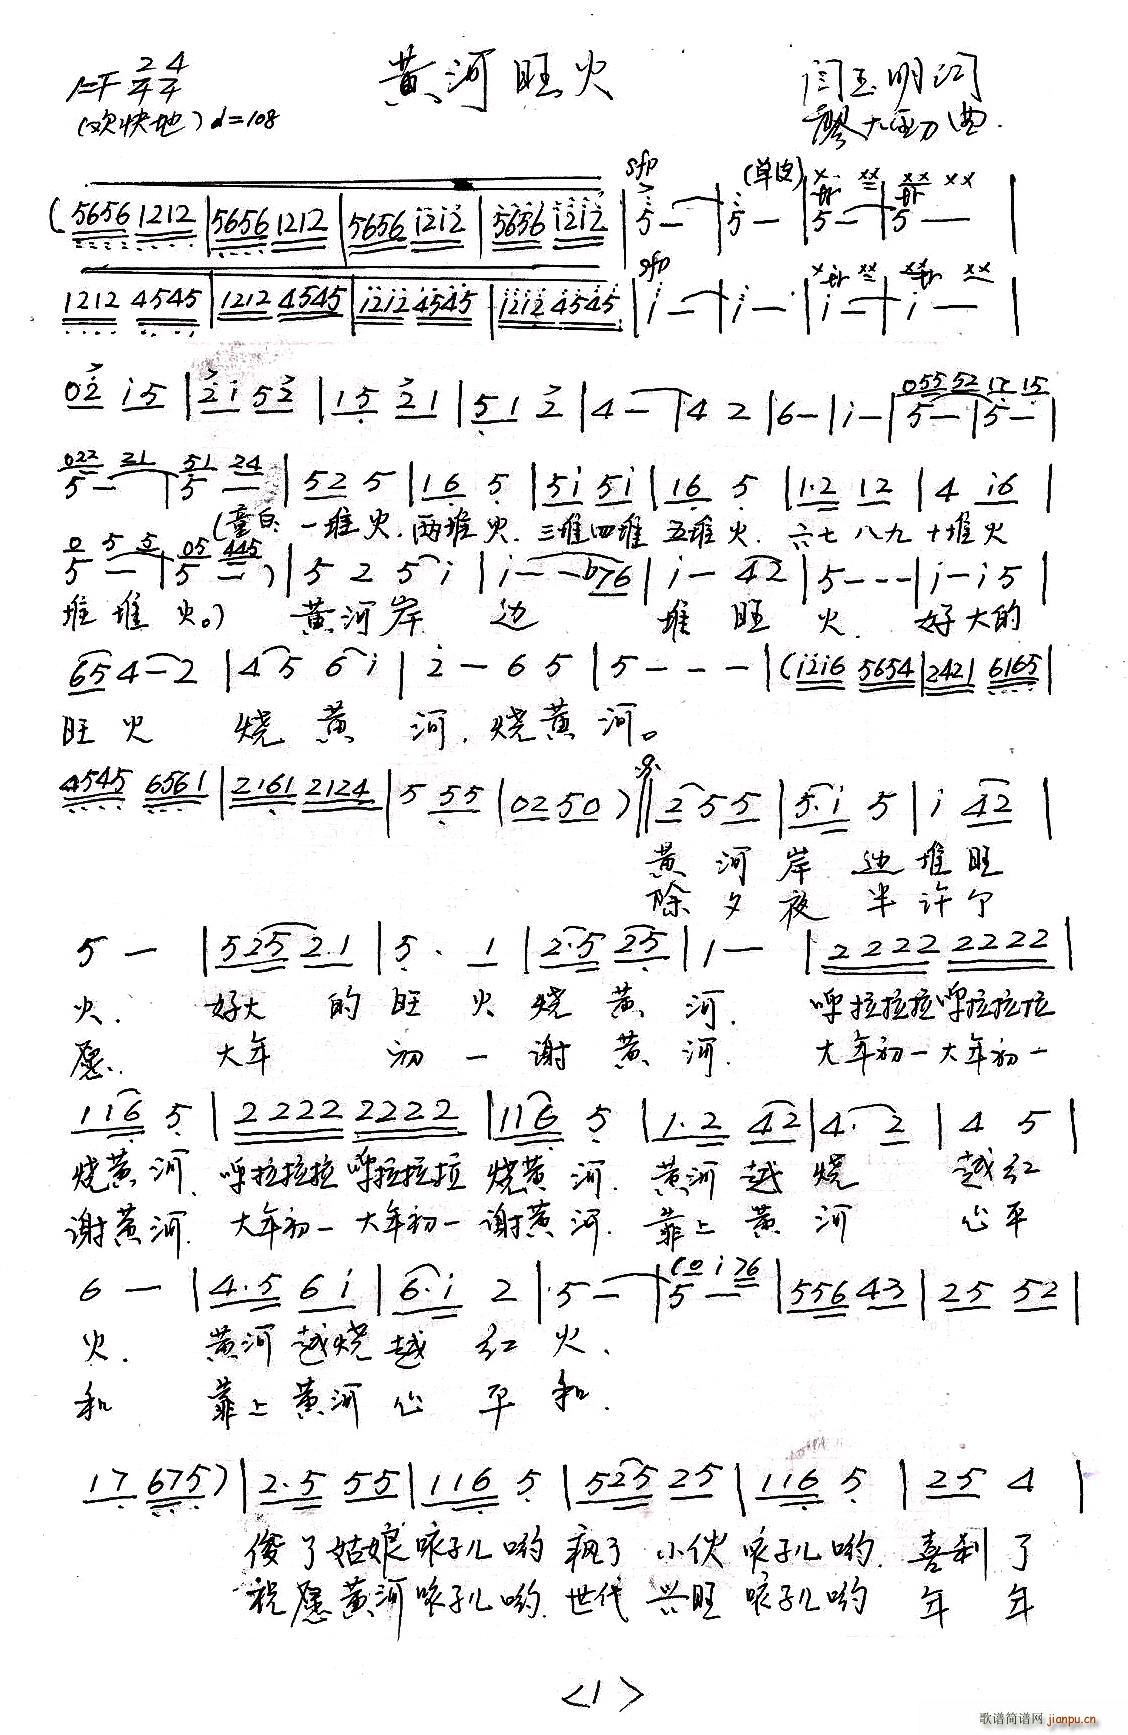 黄河旺火
1=F 2/4 4/4
闫玉明词
(欢快地) ♩=108
廖大勇曲.
sfp (单皮) x. xx xx xx
(5656 1212 | 5656 1212 | 5656 i2i2 | 5656 i2i2 | 5 — | 5 — | 5 — | 5 — |
sfp x. xx xx xx
1212 4545 | 1212 4545 | i2i2 4545 | i2i2 4545 | i — | i — | i — | i — |
055 52 12 15
02 i5 | 2i 52 | 15 21 | 51 2 | 4 — | 4 2 | 6 — | i — | 5 — | 5 — |
022 21 51 24
5 — | 5 — | 52 5 | 16 5 | 5i 5i | 16 5 | 1·2 12 | 4 i6 |
(童白: 一堆火. 两堆火. 三堆四堆 五堆火. 六七八九十堆火
0 5 5 05 445
5 — | 5 — ) | 5 2 5 i | i — — b76 | i — 42 | 5 — — — | i — i 5 |
堆堆火。) 黄河岸边 堆旺火. 好大的
65 4 — 2 | 4 5 6 i | 2 — 6 5 | 5 — — — | (i2i6 5654 | 2421 6165 |
旺火 烧黄河. 烧黄河。
4545 6561 | 2161 2124 | 5 55 | 02 50 ) ‖ 2 55 | 5·i 5 | i 42 |
黄河岸边堆旺
除夕夜半许个
5 — | 525 2·1 | 5· 1 | 2·5 25 | 1 — | 2222 2222 |
火. 好大的旺火烧黄河. 呼拉拉拉呼拉拉拉
愿. 大年初一谢黄河. 大年初一大年初一
116 5 | 2222 2222 | 116 5 | 1·2 42 | 4· 2 | 4 5 |
烧黄河. 呼拉拉拉呼拉拉拉 烧黄河. 黄河越烧 越红
谢黄河. 大年初一大年初一谢黄河. 靠上黄河 心平
(0 i 76
6 — | 4·5 6i | 6·i 2 | 5 — | 5 — | 556 43 | 25 52 |
火. 黄河越烧越红火.
和 靠上黄河心平和.
17 675 ) | 2·5 55 | 116 5 | 525 25 | 116 5 | 25 4 |
俊了姑娘咏子儿哟 疯了小伙咏子儿哟. 喜利了
祝愿黄河咏子儿哟. 世代兴旺咳子儿哟 年年
<1>
歌谱简谱网
jianpu.cn